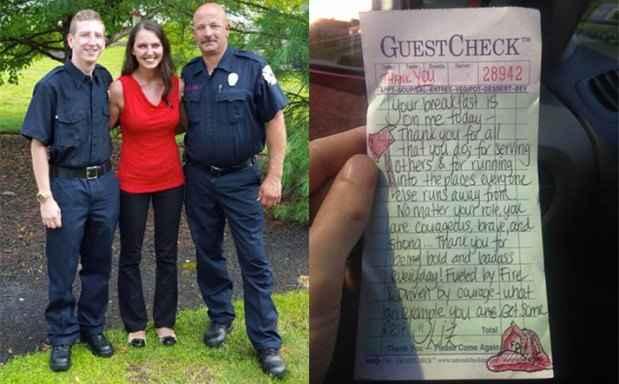 GUESTCHECK™
Date Table Guests Server
THANK YOU 28942
APPT-SOUP/SAL-ENTREE-VEG/POT-DESSERT-BEV
Your breakfast is
on me today -
Thank you for all
that you do; for serving
others & for running
into the places everyone
else runs away from.
No matter your role, you
are courageous, brave, and
strong... Thank you for
being bold and badass
everyday! Fueled by fire
& Driven by courage - what
an example you are. Get some
REST! Liz
Total
Thank You - Please Come Again